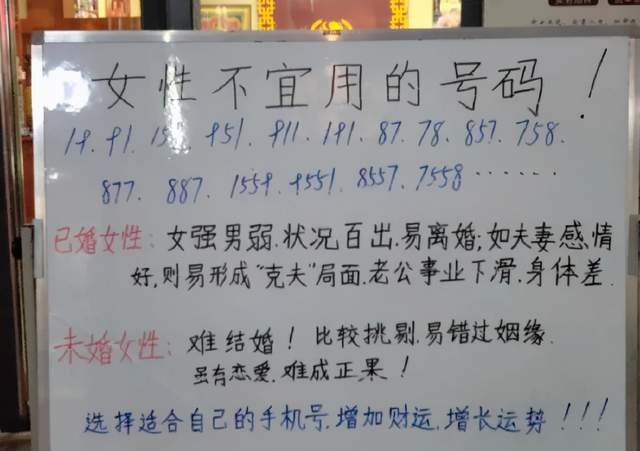 女性不宜用的号码！
19. 91. 159. 951. 911. 191. 87. 78. 857. 758.
877. 887. 1559. 9551. 8557. 7558 ……
已婚女性：女强男弱.状况百出.易离婚；如夫妻感情
好,则易形成“克夫”局面.老公事业下滑.身体差.
未婚女性：难结婚！比较挑剔.易错过姻缘.
虽有恋爱.难成正果！
选择适合自己的手机号.增加财运.增长运势！！！